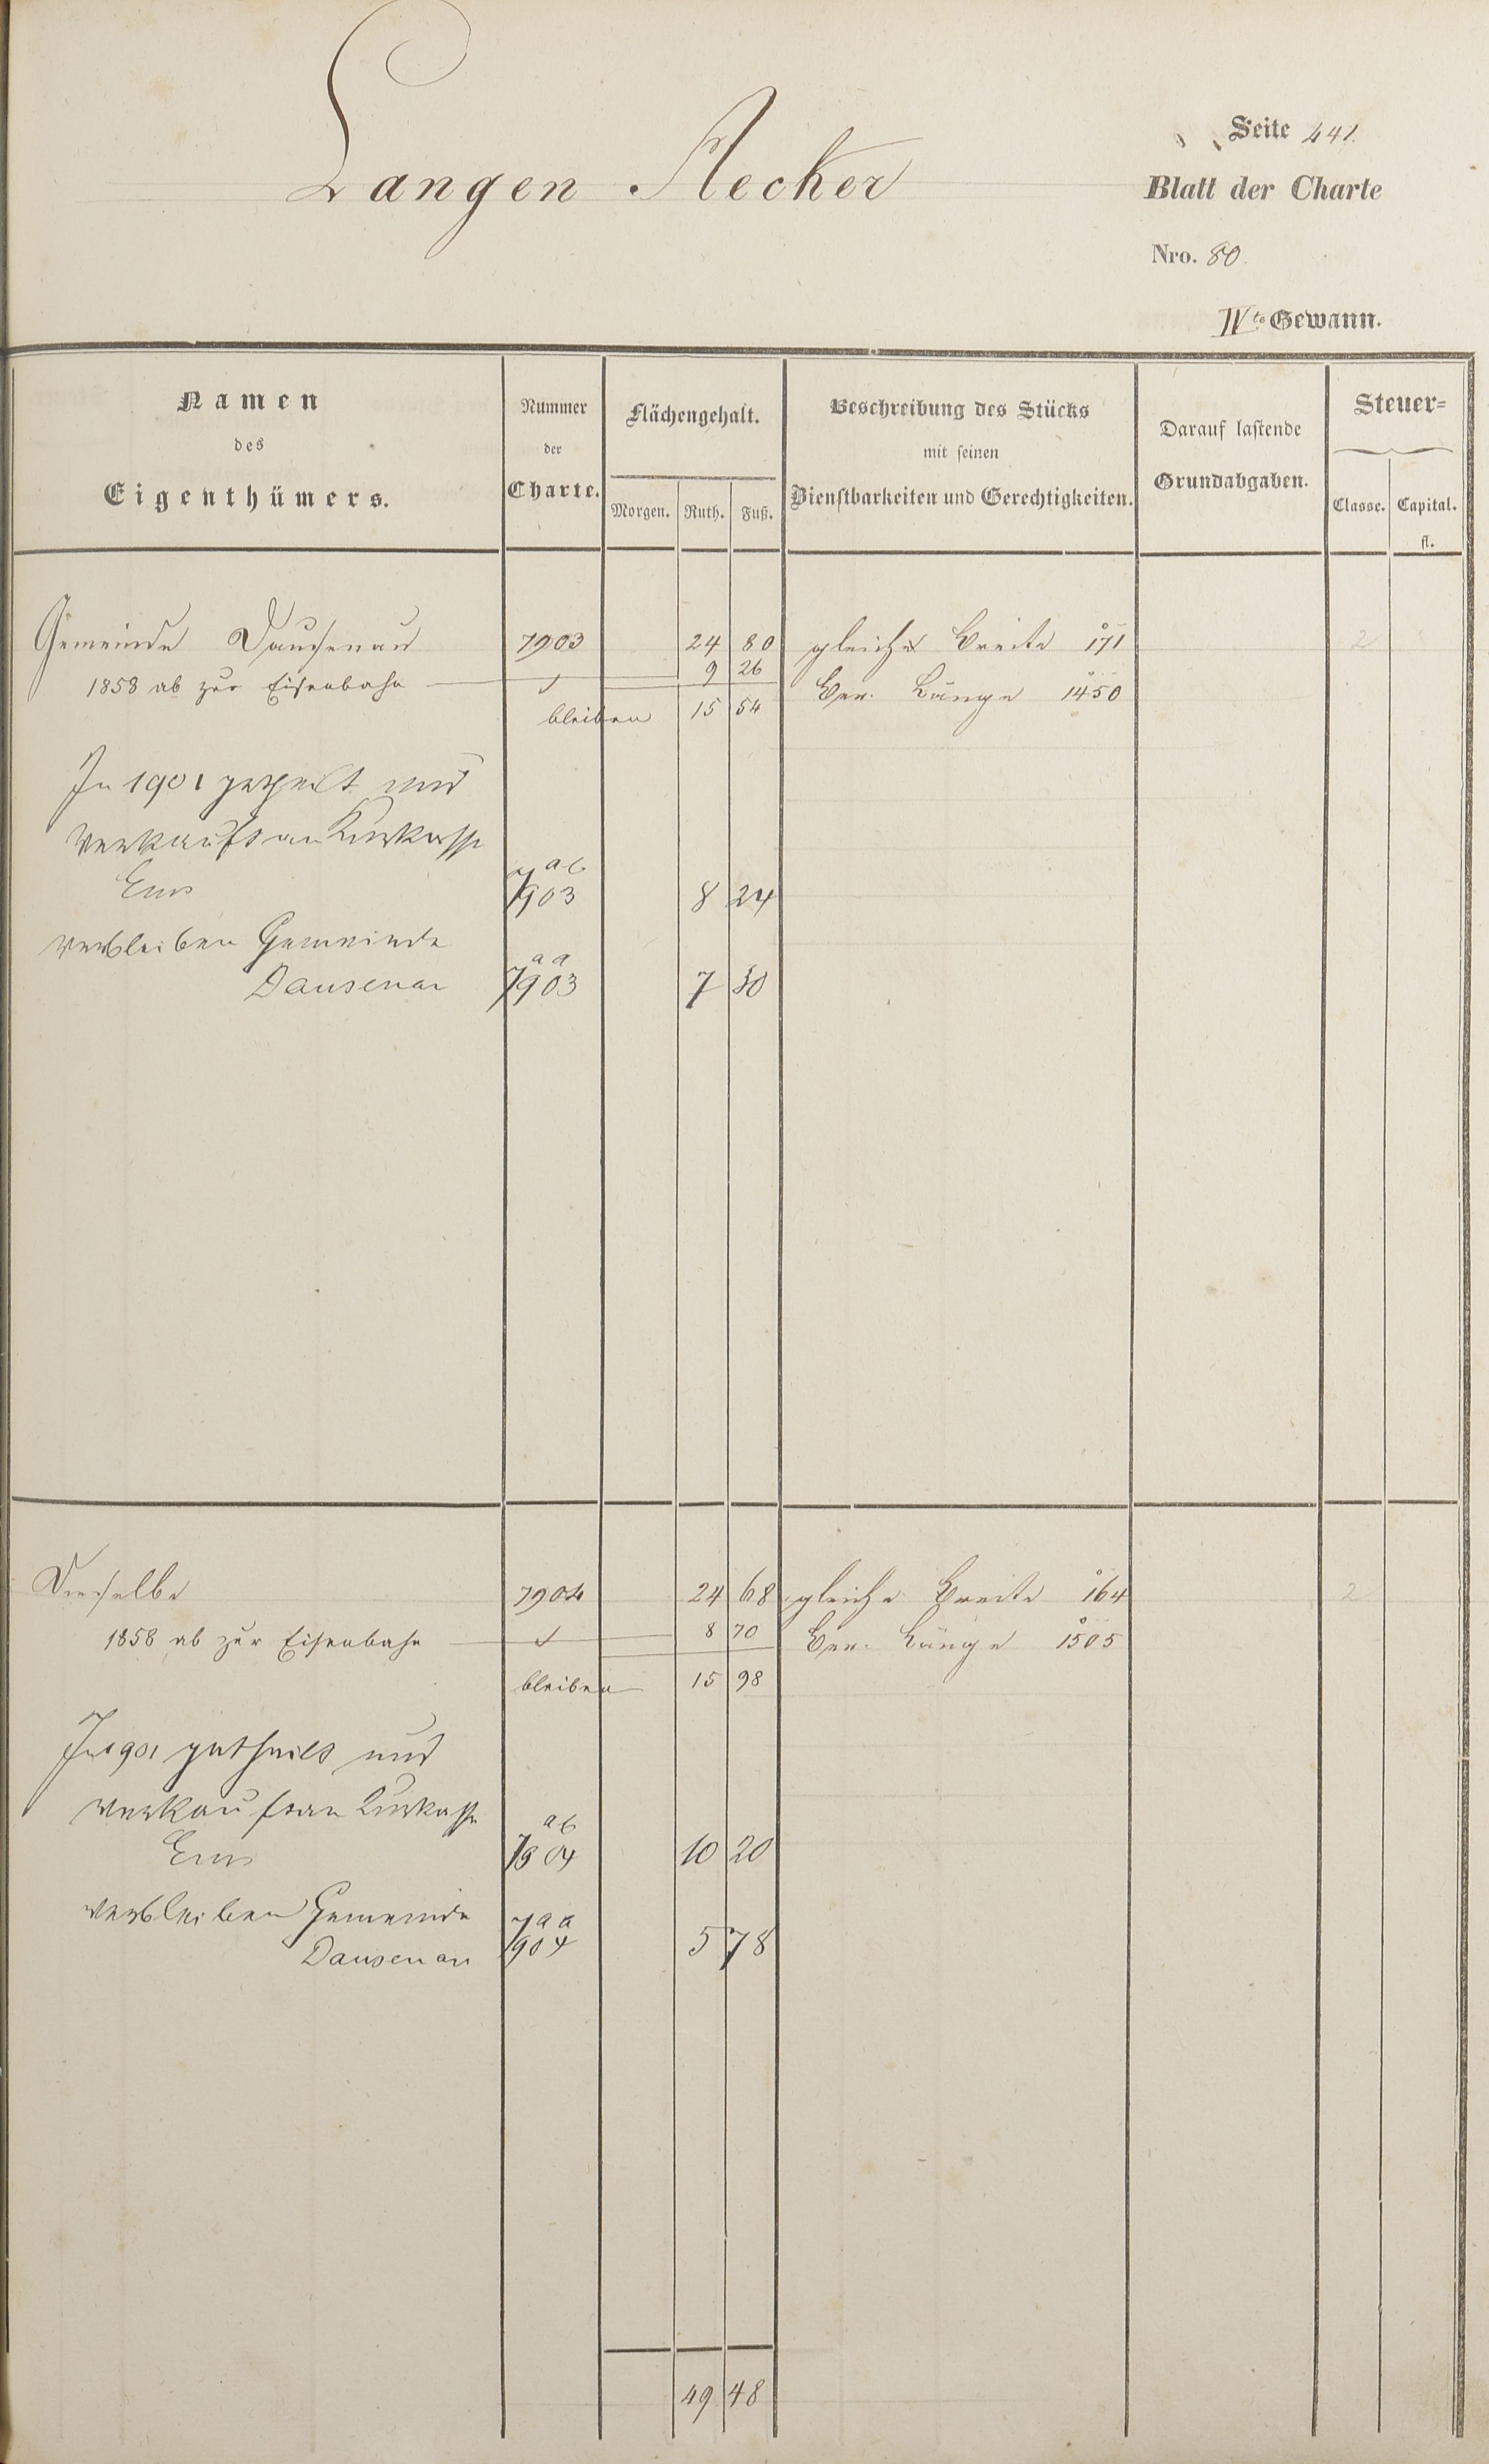 Langen Aecker
Seite 441.
Blatt der Charte
Nro. 80.
IVte Gewann.
Namen des Eigenthümers.
Nummer der Charte.
Flächengehalt.
Morgen. Ruth. Fuß.
Beschreibung des Stücks mit seinen Dienstbarkeiten und Gerechtigkeiten.
Darauf lastende Grundabgaben.
Steuer=
Classe. Capital.
fl.
Gemeinde Dausenau 7903 24 80 gleiche Breite 171 2
1858 ab zur Eisenbahn 9 26 Ver. Länge 1450
bleiben 15 54
In 1901 getheilt und
verkauft an Kurkasse
Ems 7903 ab 8 24
verbleiben Gemeinde
Dausenau 7903 aa 7 30
Dieselbe 7904 24 68 gleiche Breite 164 2
1858 ab zur Eisenbahn 8 70 Ver. Länge 1505
bleiben 15 98
In 1901 getheilt und
verkauft an Kurkasse
Ems 7904 ab 10 20
verbleiben Gemeinde
Dausenau 7904 aa 5 78
49 48